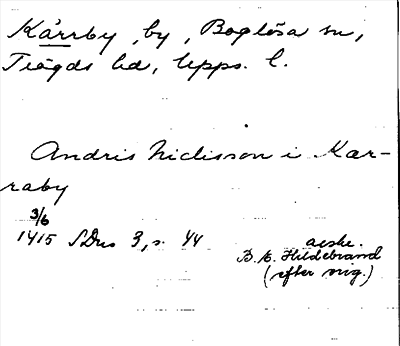 Kårrby, by, Boglösa sn,
Trögds hd, Upps. l.
Andris Niclisson i Kar-
raby
3/6
1415 SDns 3, s. 44
avskr.
B. E. Hildebrand
(efter orig.)